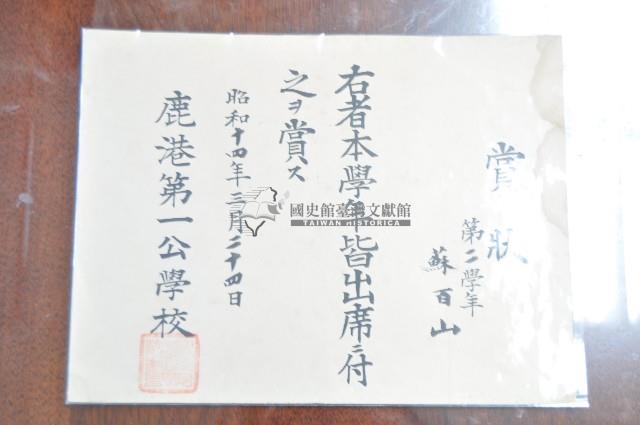 賞狀
第二學年
蘇百山
右者本學年皆出席ニ付
之ヲ賞ス
昭和十四年三月二十四日
鹿港第一公學校
國史館臺灣文獻館
TAIWAN HISTORICA